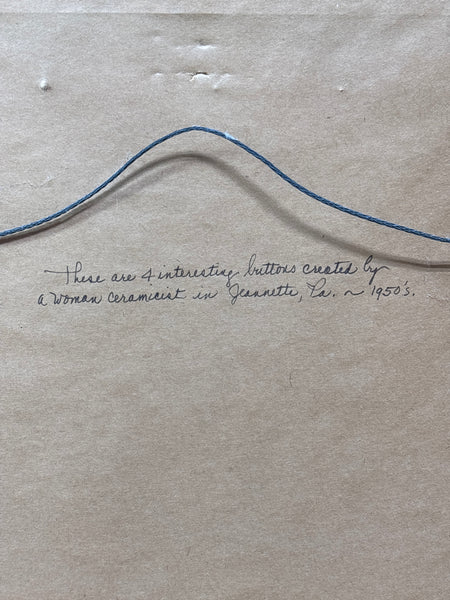 These are 4 interesting buttons created by
a woman ceramicist in Jeannette, Pa. ~ 1950's.